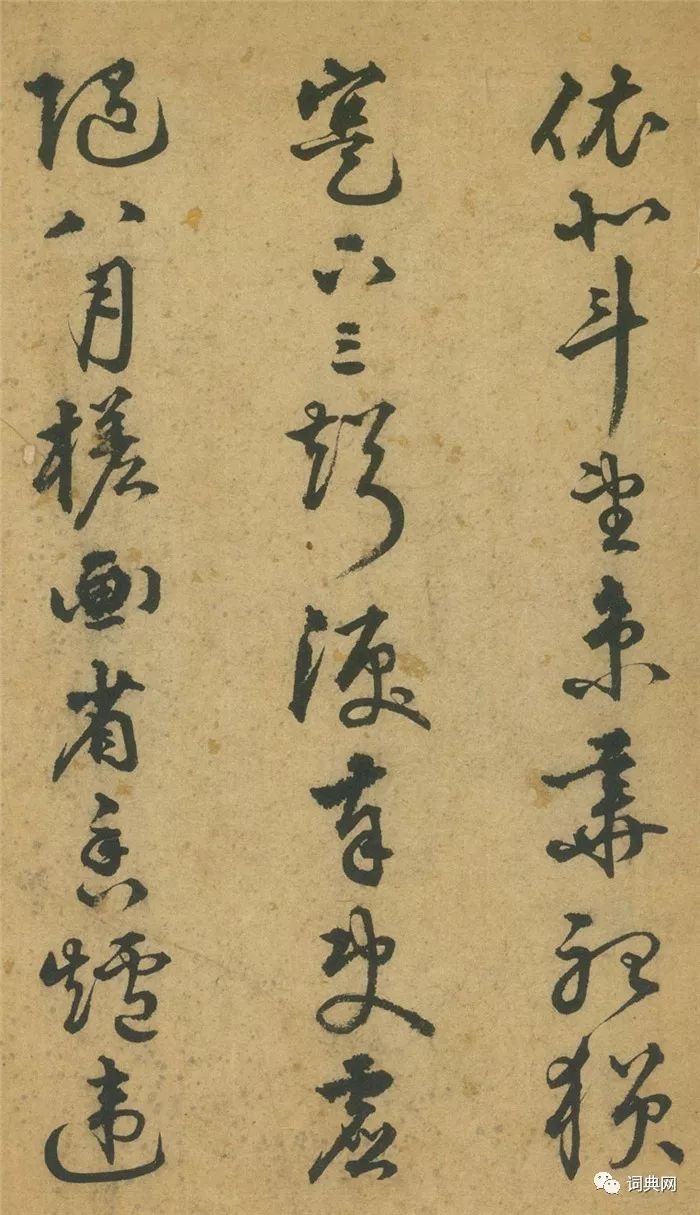 依北斗望京華聽猿
寔下三聲淚奉使虛
随八月槎画省香爐違
词典网